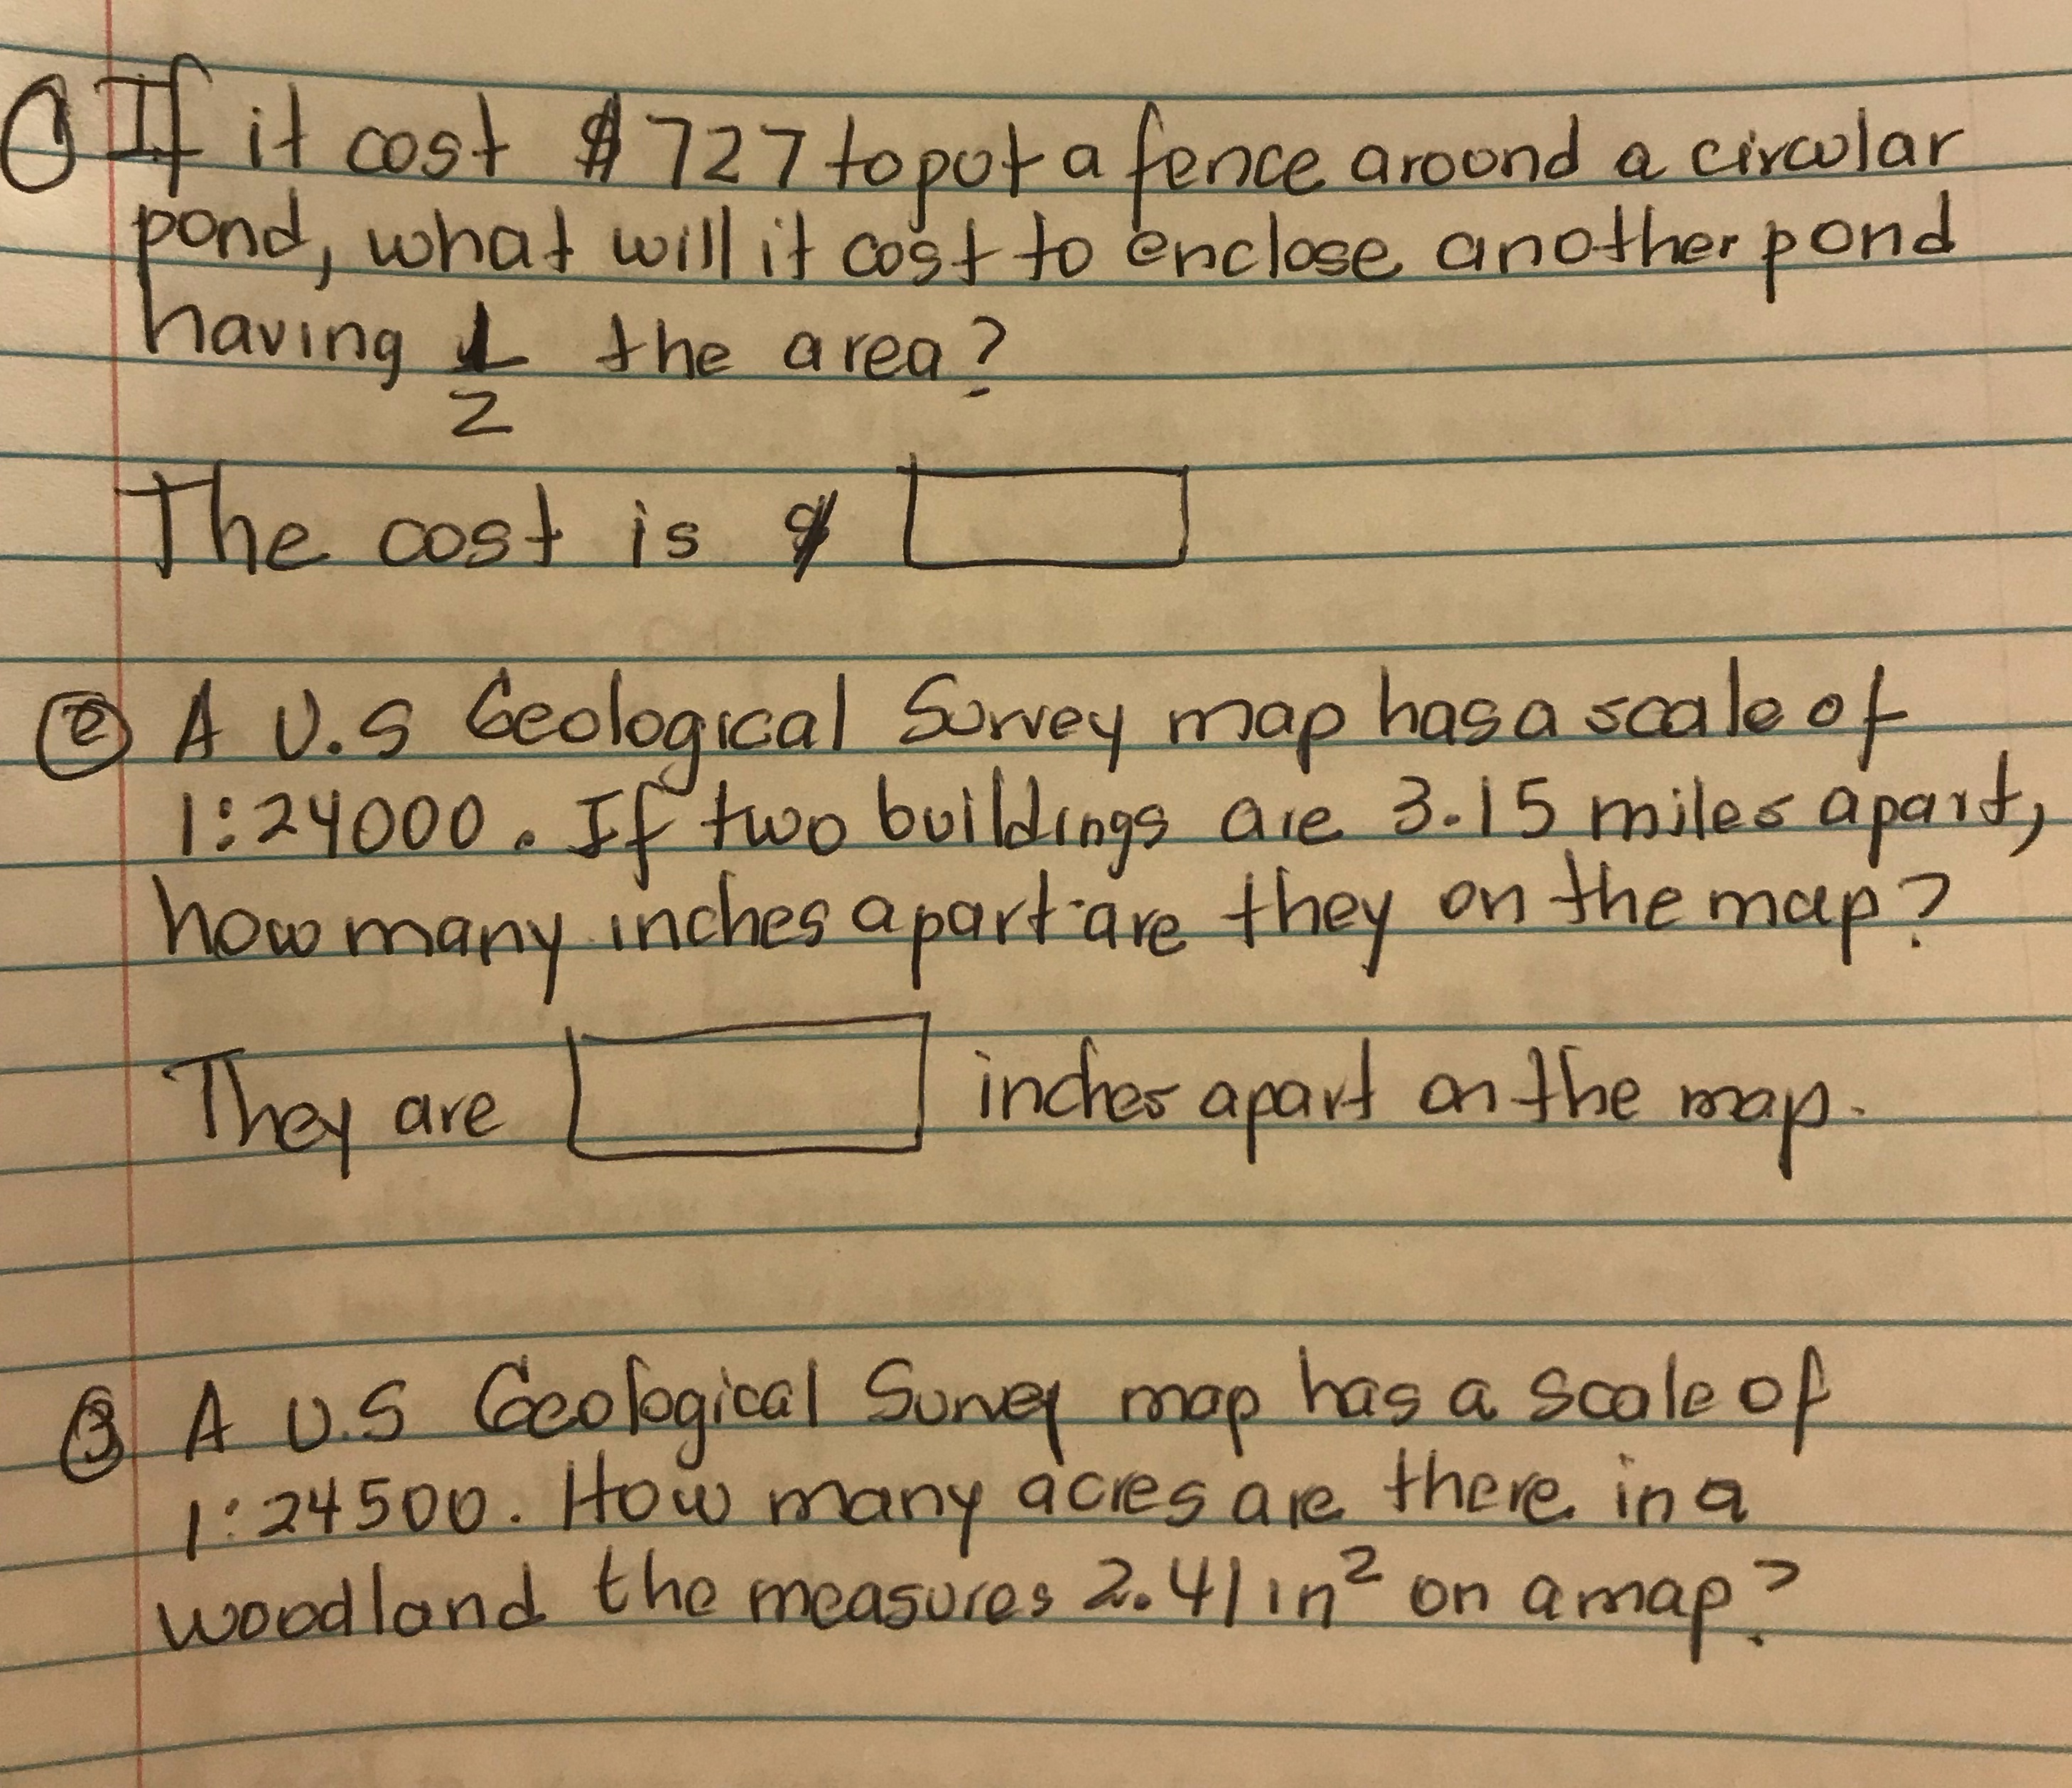 ① If it cost $727 to put a fence around a circular
pond, what will it cost to enclose another pond
having 1/2 the area?
The cost is $
② A U.S Geological Survey map has a scale of
1:24000. If two buildings are 3.15 miles apart,
how many inches apart are they on the map?
They are inches apart on the map.
③ A U.S Geological Survey map has a scale of
1:24500. How many acres are there in a
woodland the measures 2.41 in² on a map?